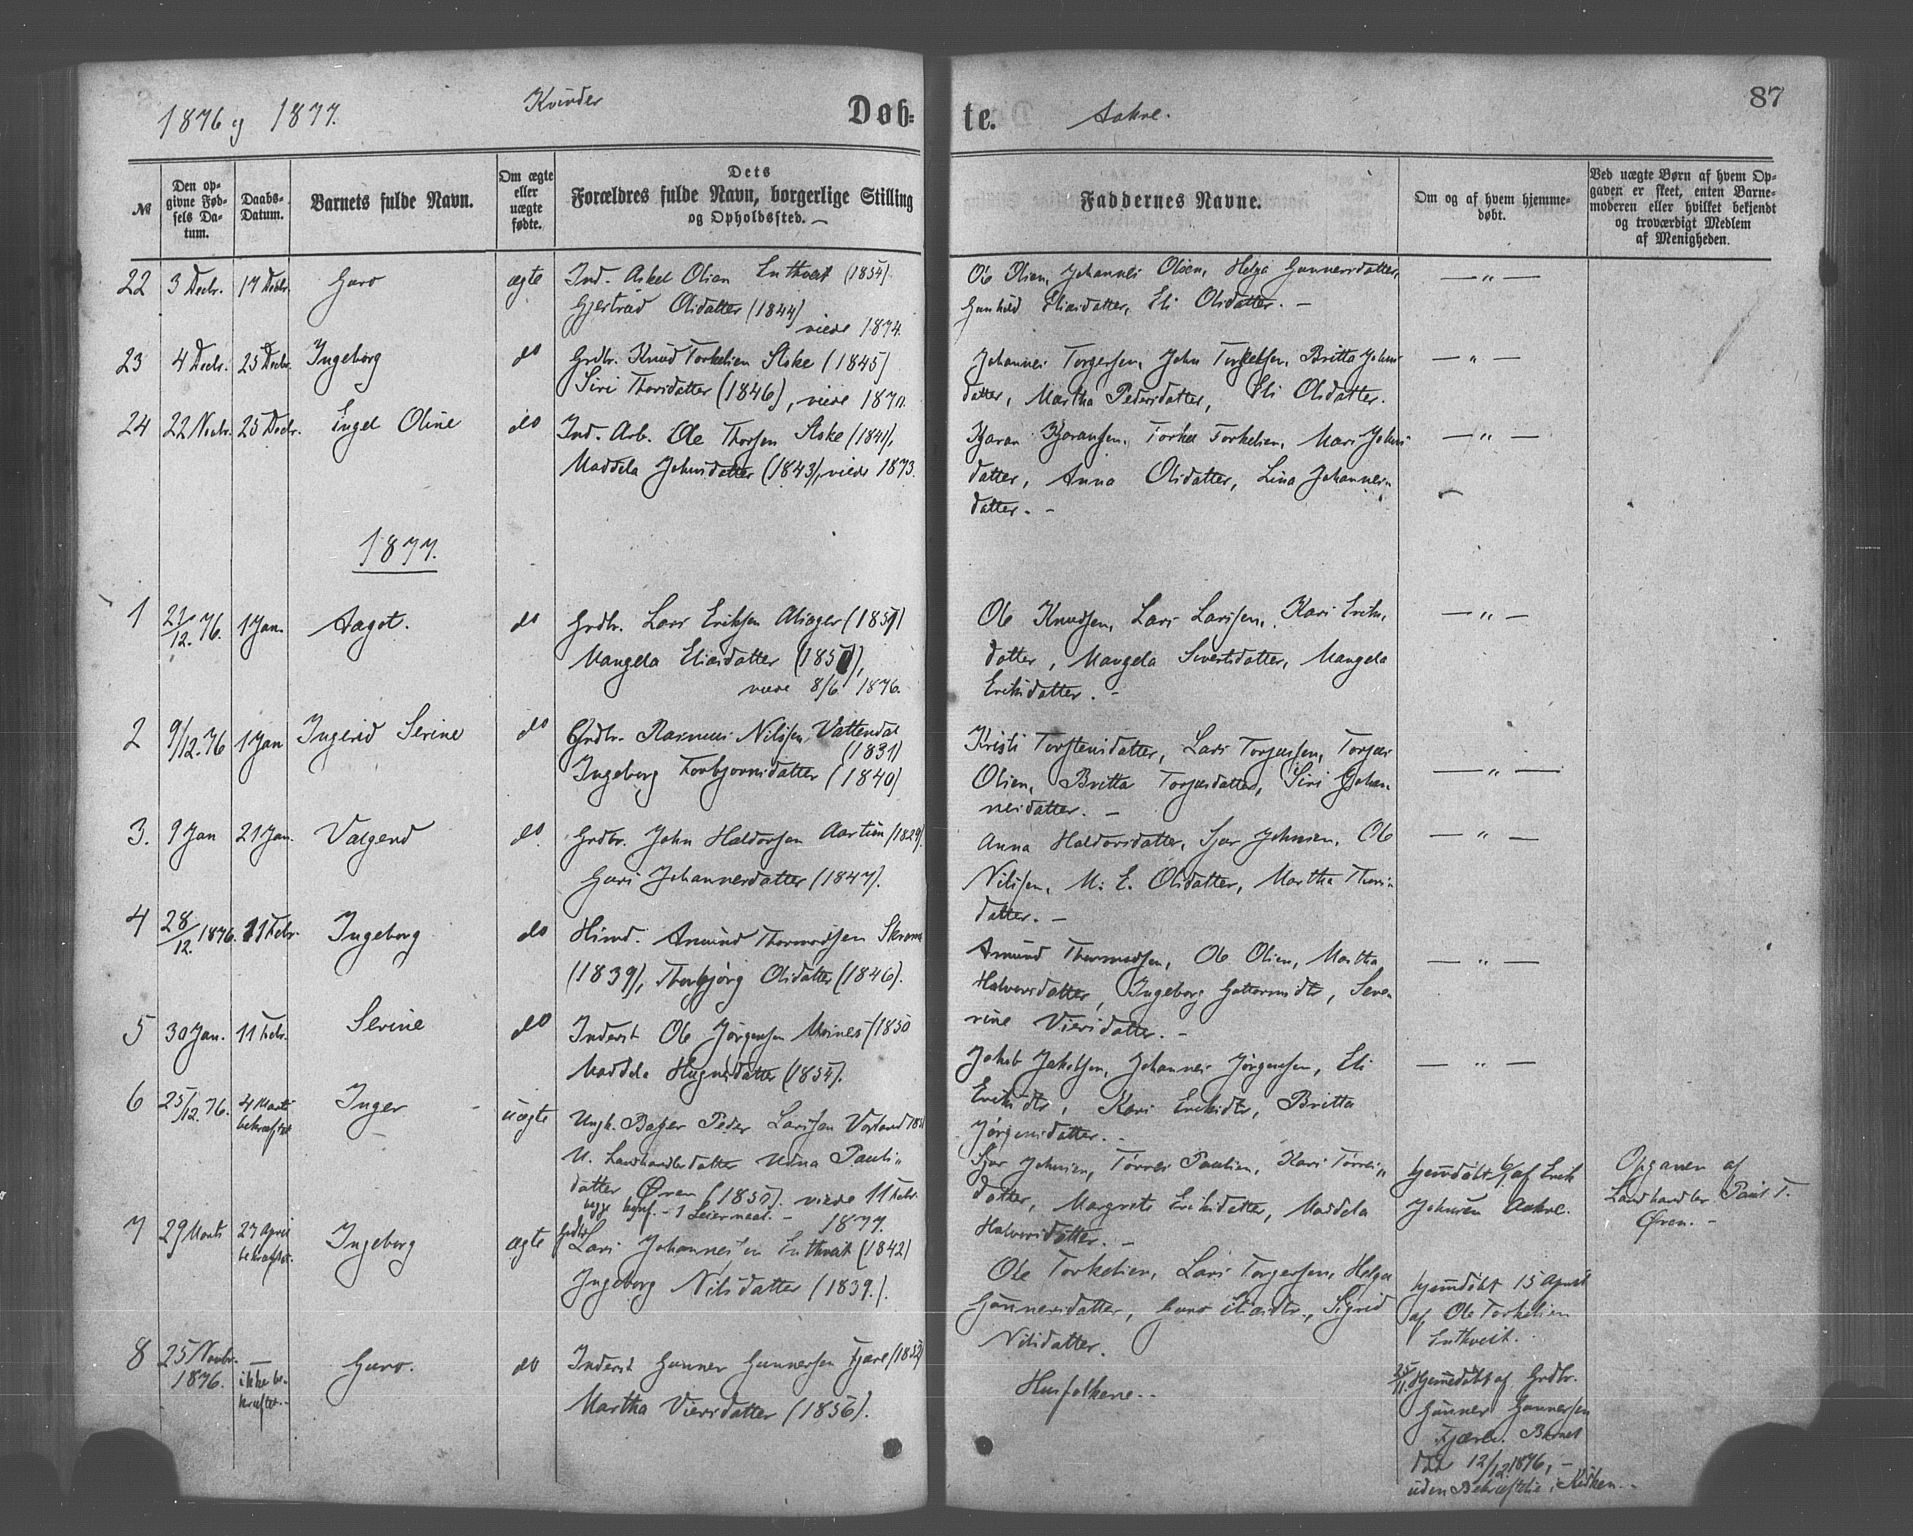 1876 og 1877. Kvinder Døb= te. Aakre. 87
№
Den op-
givne Fød-
sels Da-
tum.
Daabs-
Datum.
Barnets fulde Navn.
Om ægte
eller
uægte
fødte.
Dets
Forældres fulde Navn, borgerlige Stilling
og Opholdssted.
Faddernes Navne.
Om og af hvem hjemme-
døbt.
Ved uægte Børn af hvem Op-
gaven er skeet, enten Barne-
moderen eller hvilket bekjendt
og troværdigt Medlem
af Menigheden.
22 3 Decbr. 17 Decbr. Guro ægte Ind. Askel Olsen Enthveit (1854).
Gjertrud Olsdatter (1844)
viede 1874.
Ole Olsen, Johannes Olsen, Helga Gunnersdatter,
Gunhild Eliasdatter, Eli Olsdatter. —
— " —
23 4 Decbr. 25 Decbr. Ingeborg do Grdbr. Knud Torkelsen Stske (1845)
Siri Thorsdatter (1846), viede 1870.
Johannes Torgersen, John Torkelsen, Britta Johns
datter, Martha Pedersdatter, Eli Olsdatter.
— " —
24 22 Novbr. 25 Decbr. Engel Oline do Ind. Arb. Ole Thorsen Stske (1841),
Maddela Johnsdatter (1843), viede 1873.
Torkel Torkelsen, Mari Johns-
datter, Anna Olsdatter, Lina Johannes-
datter. —
— " —
1877.
1 21/12. 76. 1 Jan. Aagot. do Grdbr. Lars Eriksen Alsager (1851)
Mangela Eliasdatter (1850),
viede 8/6 1876.
Ole Knudsen, Lars Larssen, Kari Eriks,
datter, Mangela Sivertsdatter, Mangela
Eriksdatter. —
— " —
2 9/12. 76 1 Jan Ingerid Serine do Grdbr. Rasmus Nilssen Vattendal
(1831)
Ingeborg Torbjørnsdatter (1840)
Kristi Torstensdatter, Lars Torjussen, Torjus
Olsen, Britta Torjusdatter, Siri Johan-
nesdatter. —
— " —
3. 9 Jan 21 Jan. Valgerd do. Grdbr. John Haldorsen Aartun (1829).
Guri Johannesdatter (1847).
Anna Haldorsdatter, Sjur Johnsen, Ole
Nilssen, M. E. Olsdatter, Martha Thors-
datter. —
— " —
4 28/12. 1876. 11 Febr. Ingeborg do Hmd. Amund Thormodsen
(1839), Thorbjørg Olsdatter (1846).
Amund Thormodsen, Ole Olsen, Martha
Halvorsdatter, Ingeborg Guttormsdtr, Seve-
rine Viersdatter. —
— " —
5 30 Jan. 11 Febr. Serine do Inderst Ole Jørgensen Meines (1850
Maddela Hugnesdatter (1854).
Jakob Jakobsen, Johannes Jørgensen, Eli
Eriksdtr, Kari Eriksdtr, Britta
Jørgensdatter. —
— " —
6 25/12. 76. 4 Marts
bekræftet Inger uægte Ungk. Peder Larssen
U. Landhandlerdatter Paals-
datter Øren (1850). viede 11 Febr.
begges - 1 Leiermaal. - 1877.
Sjur Johnsen, Tørres Paulsen, Kari Tørres-
datter, Margrete Eriksdatter, Maddela
Halvorsdatter. —
hjemdøbt af Erik
Johnsen Aakre.
Opgaven af
Landhandler Paul T.
Øren. —
7 29 Marts 27 April
bekræftet. Ingeborg ægte Grdbr. Lars Johannessen Enthveit (1842)
Ingeborg Nilsdatter (1839.).
Ole Torkelsen, Lars Torgersen, Helga
Gunnersdatter, Guro Eliasdtr., Sigrid
Nilsdatter.
hjemdøbt 15 April
af Ole Torkelsen
Enthveit.
8 25 Novbr.
1876. —
ikke be-
kræftet. Guro. do Inderst Gunner Gunnersen Fjære (1852)
Martha Viersdatter (1856).
Husfolkene. -
25/11. Hjemmedøbt af Grdbr.
Gunner Gunnersen
Fjære. Barnet
død 12/12 1876, —
uden Bekræftelse i Kirken. —